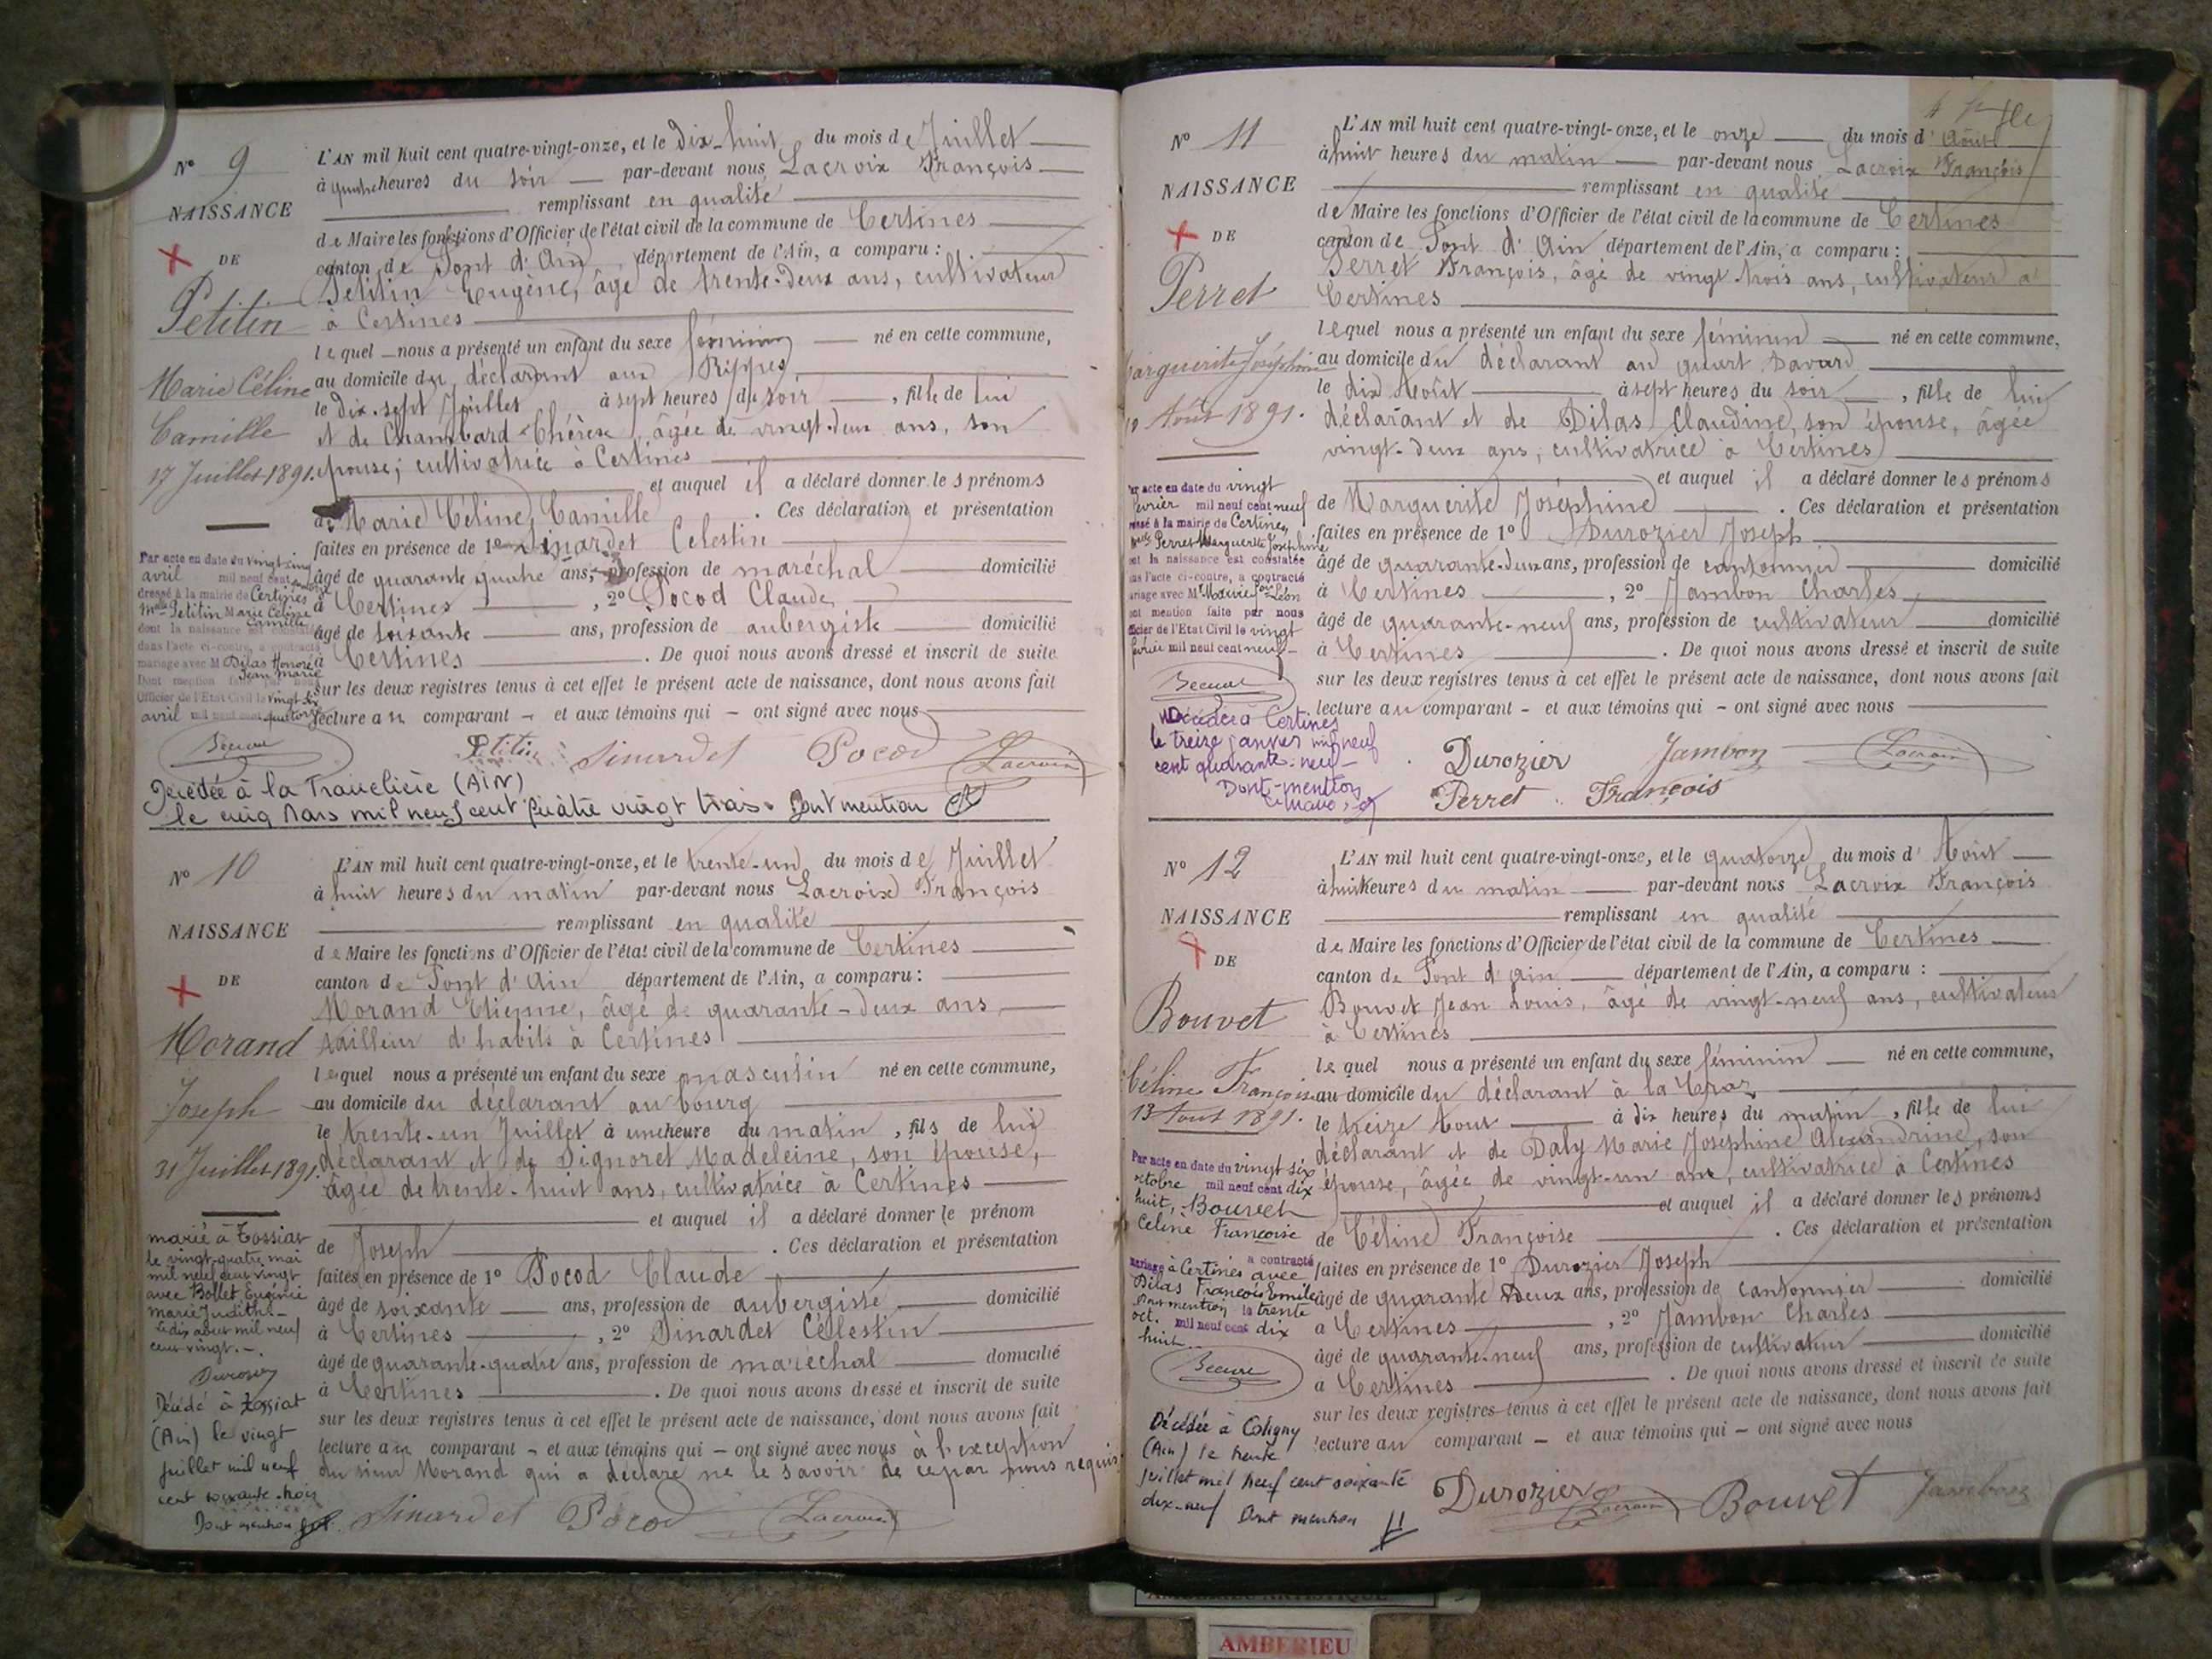 N° 9
L'AN mil huit cent quatre-vingt-onze, et le dix-huit du mois de Juillet
à quatre heures du soir par-devant nous Lacroix François
remplissant en qualité
NAISSANCE
de Maire les fonctions d'Officier de l'état civil de la commune de Certines
DE
canton de Pont d'Ain département de l'Ain, a comparu :
Petitin Eugène, âgé de trente-deux ans, cultivateur
Petitin
à Certines
lequel nous a présenté un enfant du sexe féminin né en cette commune,
au domicile du déclarant aux Rippes
Marie Céline
le dix-sept Juillet à sept heures du soir, fille de lui
Camille
et de Chambard Thérèse, âgée de vingt-deux ans, son
17 Juillet 1891.
épouse, cultivatrice à Certines
et auquel il a déclaré donner les prénoms
de Marie Céline Camille. Ces déclaration et présentation
faites en présence de 1° Sinardet Celestin
âgé de quarante quatre ans, profession de maréchal domicilié
à Certines, 2° Pocod Claude
âgé de soixante ans, profession de aubergiste domicilié
à Certines. De quoi nous avons dressé et inscrit de suite
sur les deux registres tenus à cet effet le présent acte de naissance, dont nous avons fait
lecture au comparant et aux témoins qui ont signé avec nous
Par acte en date du vingt cinq
avril mil neuf cent quatorze
dressé à la mairie de Certines
Melle Petitin Marie Céline
Camille
dont la naissance est constatée
dans l'acte ci-contre, a contracté
mariage avec M Dilas Honoré
Jean Marie
Dont mention faite par nous
Officier de l'Etat Civil le vingt six
avril mil neuf cent quatorze
Petitin Sinardet Pocod Lacroix
Décédée à la Tranclière (AIN)
le cinq Mars mil neuf cent quatre vingt trois. Dont mention
N° 10
L'AN mil huit cent quatre-vingt-onze, et le trente-un du mois de Juillet
à huit heures du matin par-devant nous Lacroix François
remplissant en qualité
NAISSANCE
de Maire les fonctions d'Officier de l'état civil de la commune de Certines
DE
canton de Pont d'Ain département de l'Ain, a comparu :
Morand Etienne, âgé de quarante-deux ans
Morand
tailleur d'habits à Certines
lequel nous a présenté un enfant du sexe masculin né en cette commune,
Joseph
au domicile du déclarant au bourg
le trente-un Juillet à une heure du matin, fils de lui
31 Juillet 1891.
déclarant et de Signoret Madeleine, son épouse,
âgée de trente-huit ans, cultivatrice à Certines
et auquel il a déclaré donner le prénom
de Joseph. Ces déclaration et présentation
faites en présence de 1° Pocod Claude
âgé de soixante ans, profession de aubergiste domicilié
à Certines, 2° Sinardet Célestin
âgé de quarante-quatre ans, profession de maréchal domicilié
à Certines. De quoi nous avons dressé et inscrit de suite
sur les deux registres tenus à cet effet le présent acte de naissance, dont nous avons fait
lecture au comparant et aux témoins qui ont signé avec nous à l'exception
du sieur Morand qui a déclaré ne le savoir de ce par nous requis
marié à Tossiat
le vingt-quatre mai
mil neuf cent vingt
avec Bollet Eugénie
Marie Judith
Le dix août mil neuf
cent vingt.
Durozier
Décédé à Tossiat
(Ain) le vingt
juillet mil neuf
cent soixante-trois
Dont mention
Sinardet Pocod Lacroix
N° 11
L'AN mil huit cent quatre-vingt-onze, et le onze du mois d'Août
à huit heures du matin par-devant nous Lacroix François
remplissant en qualité
NAISSANCE
de Maire les fonctions d'Officier de l'état civil de la commune de Certines
DE
canton de Pont d'Ain département de l'Ain, a comparu :
Perret François, âgé de vingt-trois ans, cultivateur à
Perret
Certines
lequel nous a présenté un enfant du sexe féminin né en cette commune,
Marguerite Joséphine
au domicile du déclarant au quart Savard
le dix Août à sept heures du soir, fille de lui
10 Août 1891.
déclarant et de Dilas Claudine, son épouse, âgée
vingt-deux ans, cultivatrice à Certines
et auquel il a déclaré donner les prénoms
de Marguerite Joséphine. Ces déclaration et présentation
faites en présence de 1° Durozier Joseph
âgé de quarante-deux ans, profession de cantonnier domicilié
à Certines, 2° Jambon Charles
âgé de quarante-neuf ans, profession de cultivateur domicilié
à Certines. De quoi nous avons dressé et inscrit de suite
sur les deux registres tenus à cet effet le présent acte de naissance, dont nous avons fait
lecture au comparant et aux témoins qui ont signé avec nous
acte en date du vingt
février mil neuf cent neuf
à la mairie de Certines
Perret Marguerite Joséphine
la naissance est constatée
l'acte ci-contre, a contracté
avec M
Léon
mention faite par nous
de l'Etat Civil le vingt
février mil neuf cent neuf
Décédée à Certines
le treize janvier mil neuf
cent quarante-neuf
Dont mention
Durozier Jambon Lacroix
Perret François
N° 12
L'AN mil huit cent quatre-vingt-onze, et le quatorze du mois d'Août
à huit heures du matin par-devant nous Lacroix François
remplissant en qualité
NAISSANCE
de Maire les fonctions d'Officier de l'état civil de la commune de Certines
DE
canton de Pont d'Ain département de l'Ain, a comparu :
Bouvet Jean Louis, âgé de vingt-neuf ans, cultivateur
Bouvet
à Certines
lequel nous a présenté un enfant du sexe féminin né en cette commune,
Céline Françoise
au domicile du déclarant à la Craz
13 Aout 1891.
le treize Aout à dix heures du matin, fille de lui
déclarant et de Daly Marie Joséphine Alexandrine, son
épouse, âgée de vingt-un ans, cultivatrice à Certines
et auquel il a déclaré donner les prénoms
de Céline Françoise. Ces déclaration et présentation
faites en présence de 1° Durozier Joseph
âgé de quarante deux ans, profession de cantonnier domicilié
à Certines, 2° Jambon Charles
âgé de quarante-neuf ans, profession de cultivateur domicilié
à Certines. De quoi nous avons dressé et inscrit de suite
sur les deux registres tenus à cet effet le présent acte de naissance, dont nous avons fait
lecture au comparant et aux témoins qui ont signé avec nous
Par acte en date du vingt six
octobre mil neuf cent dix
huit, Bouvet
Celine Françoise
a contracté
mariage à Certines avec
Dilas François Emile
mention le trente
oct. mil neuf cent dix
huit
Décédée à Coligny
(Ain) le trente
juillet mil neuf cent soixante
dix-neuf Dont mention
Durozier Lacroix Bouvet Jambon
AMBERIEU